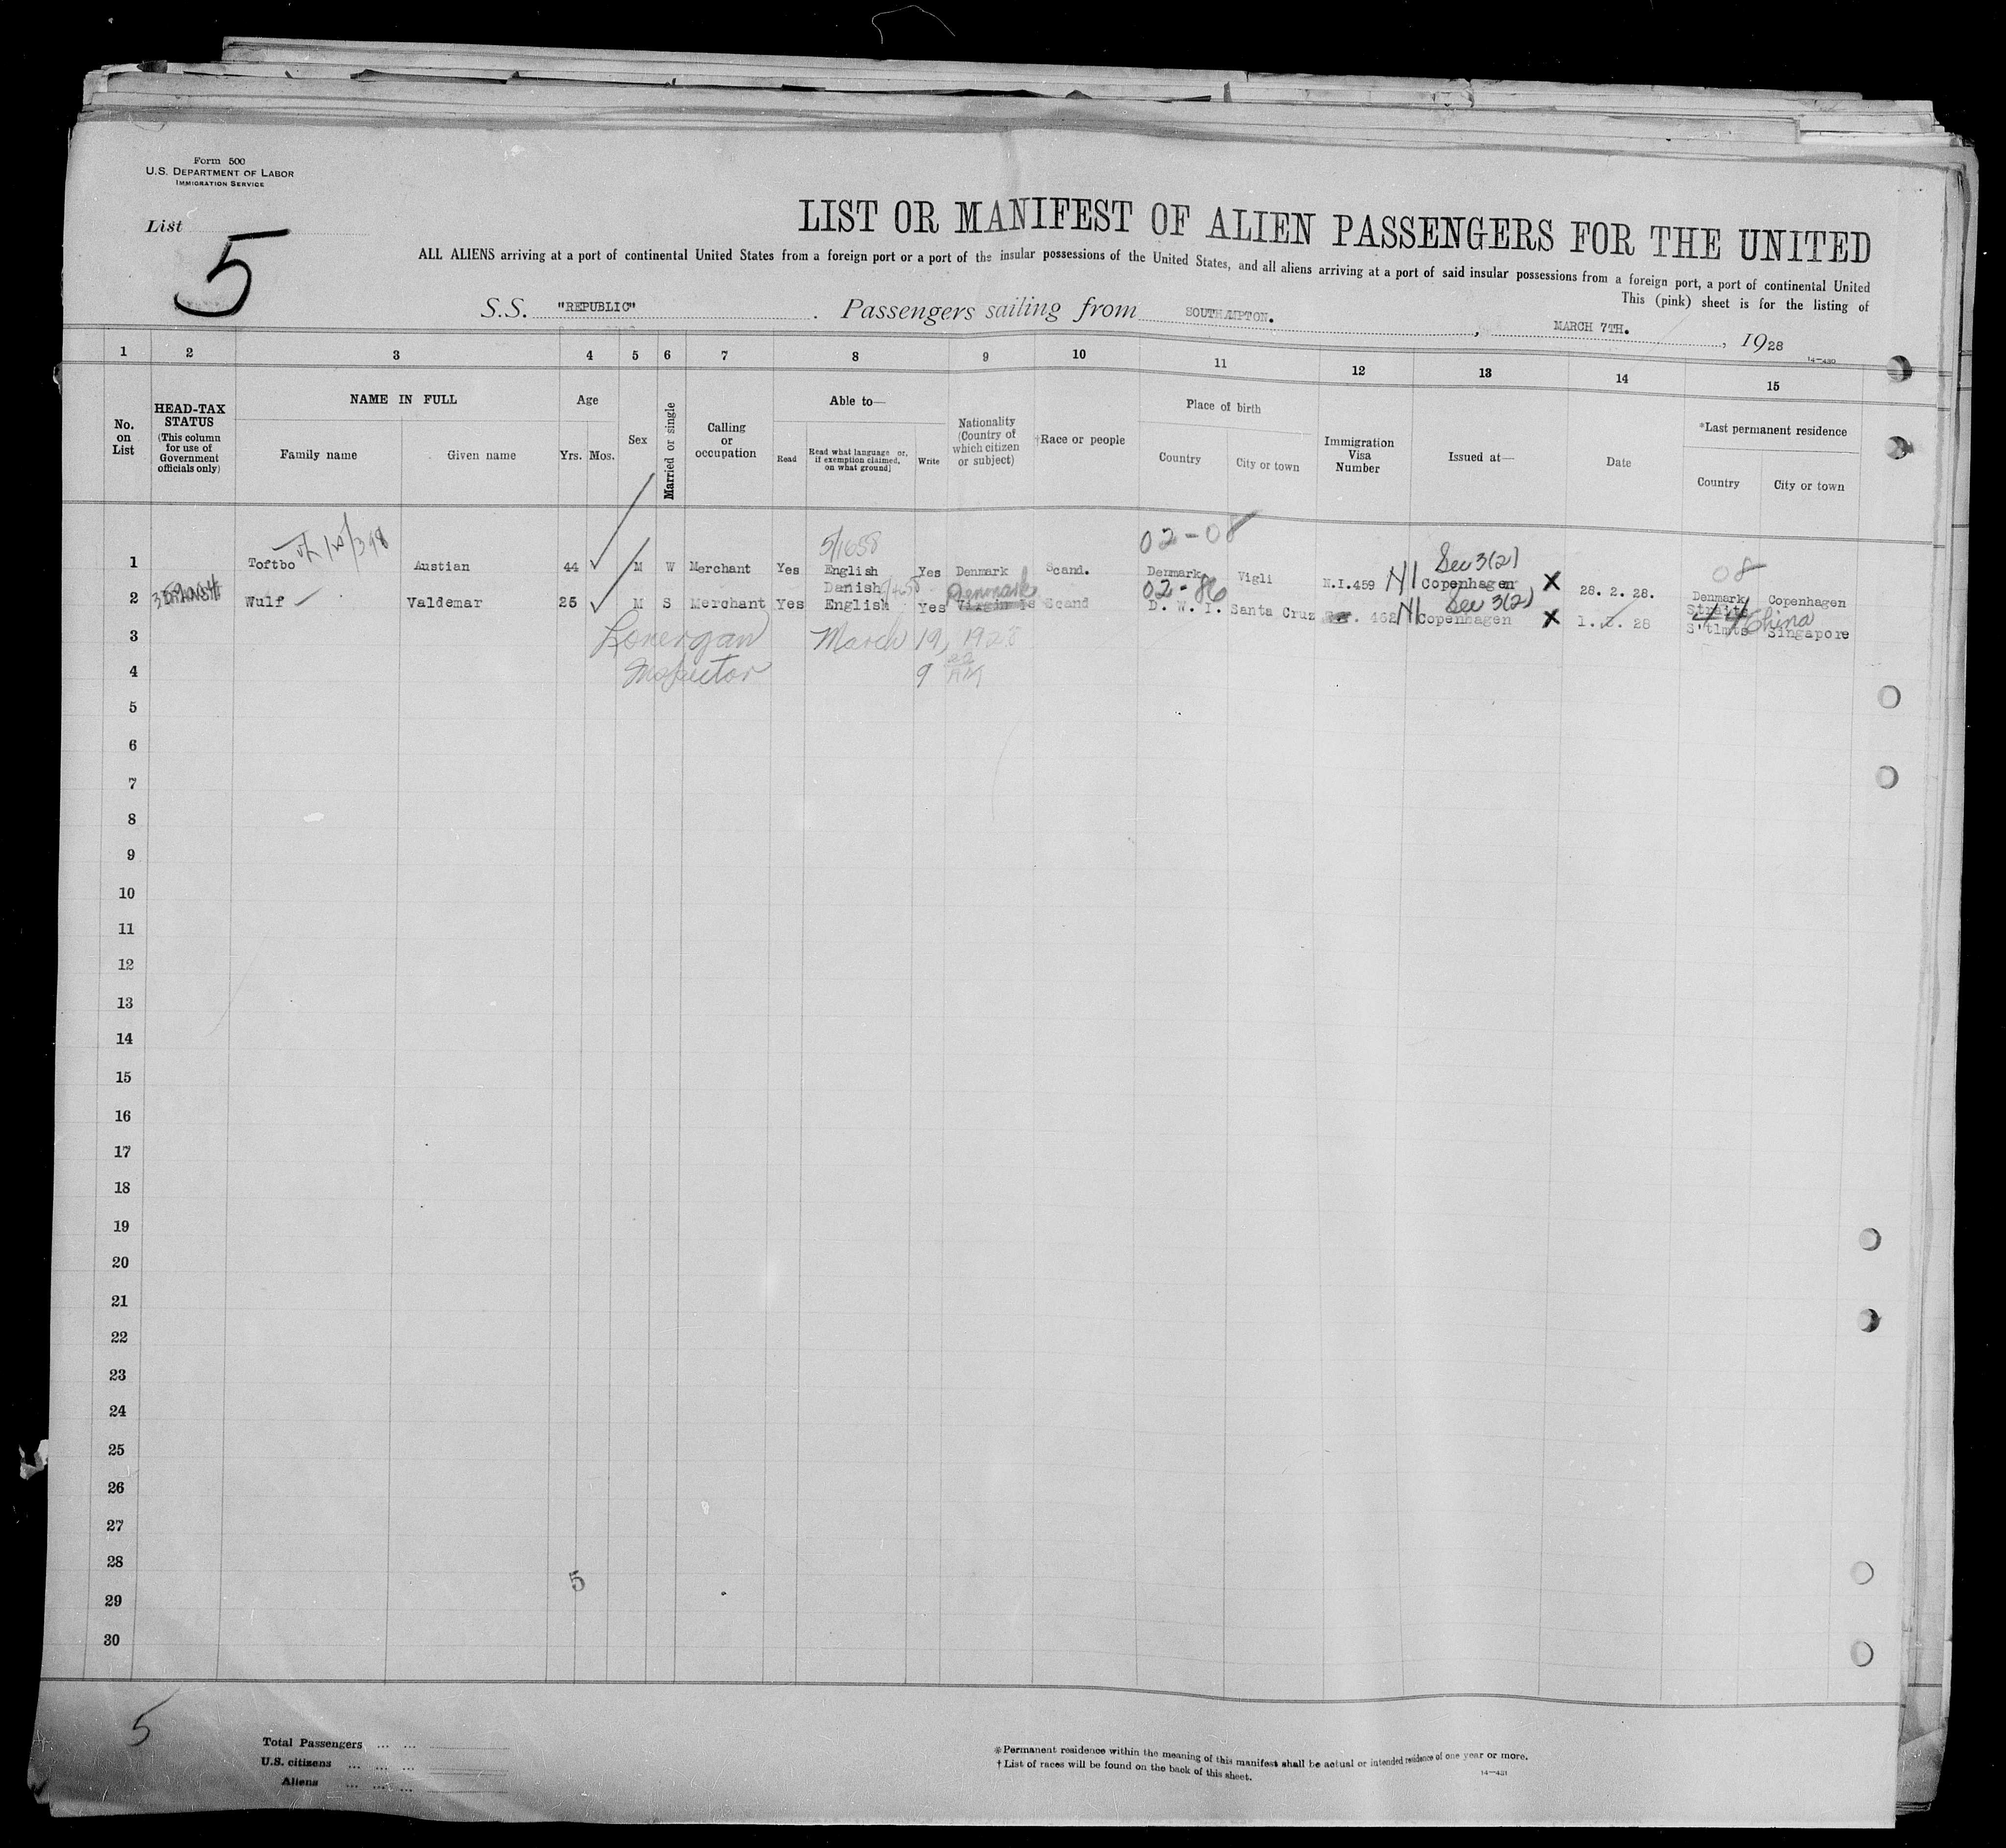 Form 500
U.S. DEPARTMENT OF LABOR
IMMIGRATION SERVICE
List 5
LIST OR MANIFEST OF ALIEN PASSENGERS FOR THE UNITED
ALL ALIENS arriving at a port of continental United States from a foreign port or a port of the insular possessions of the United States, and all aliens arriving at a port of said insular possessions from a foreign port, a port of continental United
This (pink) sheet is for the listing of
S.S. "REPUBLIC". Passengers sailing from SOUTHAMPTON. , MARCH 7TH. , 1928
14-430
1 2 3 4 5 6 7 8 9 10 11 12 13 14 15
No. on List
HEAD-TAX STATUS (This column for use of Government officials only)
NAME IN FULL
Family name Given name
Age
Yrs. Mos.
Sex
Married or single
Calling or occupation
Able to—
Read Read what language or, if exemption claimed, on what ground] Write
Nationality (Country of which citizen or subject)
†Race or people
Place of birth
Country City or town
Immigration Visa Number
Issued at—
Date
*Last permanent residence
Country City or town
5/1658 02-08 Sec 3(2) 08
1 Toftbo Austian 44 M W Merchant Yes English Yes Denmark Scand. Denmark Vigli N.I.459 NI Copenhagen X 28. 2. 28. Denmark Copenhagen
Danish Denmark 02-86 Sec 3(2) Straits 44 China
2 Wulf Valdemar 25 M S Merchant Yes English Yes Virgin Is Scand D. W. I. Santa Cruz 462 NI Copenhagen X 1. 2. 28 S'tlmts Singapore
3 Lonergan March 19, 1928
4 Inspector 9 AM
5
6
7
8
9
10
11
12
13
14
15
16
17
18
19
20
21
22
23
24
25
26
27
28
5
29
30
5
Total Passengers ... ...
U.S. citizens ... ... ...
Aliens ... ... ...
*Permanent residence within the meaning of this manifest shall be actual or intended residence of one year or more.
†List of races will be found on the back of this sheet.
14-431